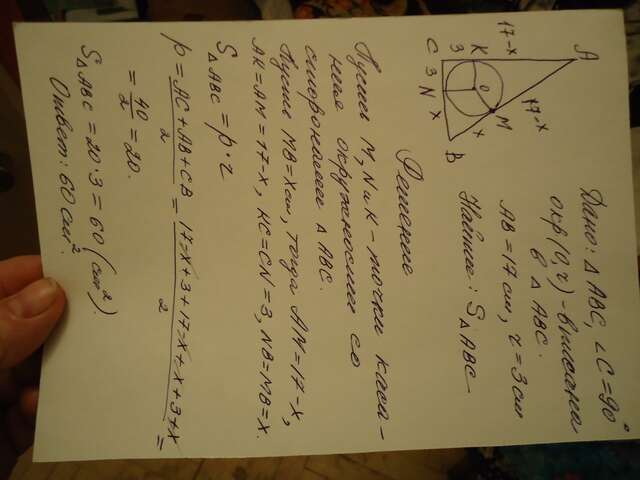 Дано: △ ABC, ∠C=90°
окр(O,r) - вписана
в △ ABC.
AB = 17 см, r = 3 см
Найти: S△ABC
A
17-x
17-x
K
C
3
O
M
3
N
x
x
B
Решение
Пусть M, N и K - точки каса-
ния окружности со
сторонами △ ABC.
Пусть MB = x см, тогда AM = 17-x,
AK = AM = 17-x, KC = CN = 3, NB = MB = x.
S△ABC = p·r
p = AC + AB + CB / 2 = 17-x+3+17-x+x+3+x / 2 =
= 40/2 = 20.
S△ABC = 20·3 = 60 (см²).
Ответ: 60 см².